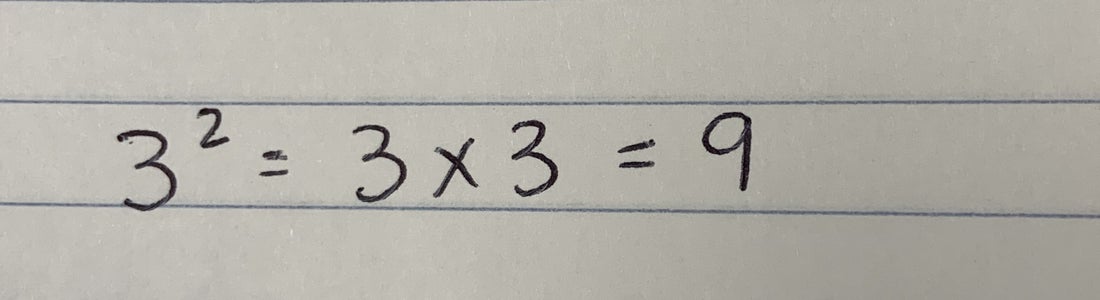 3² = 3 x 3 = 9